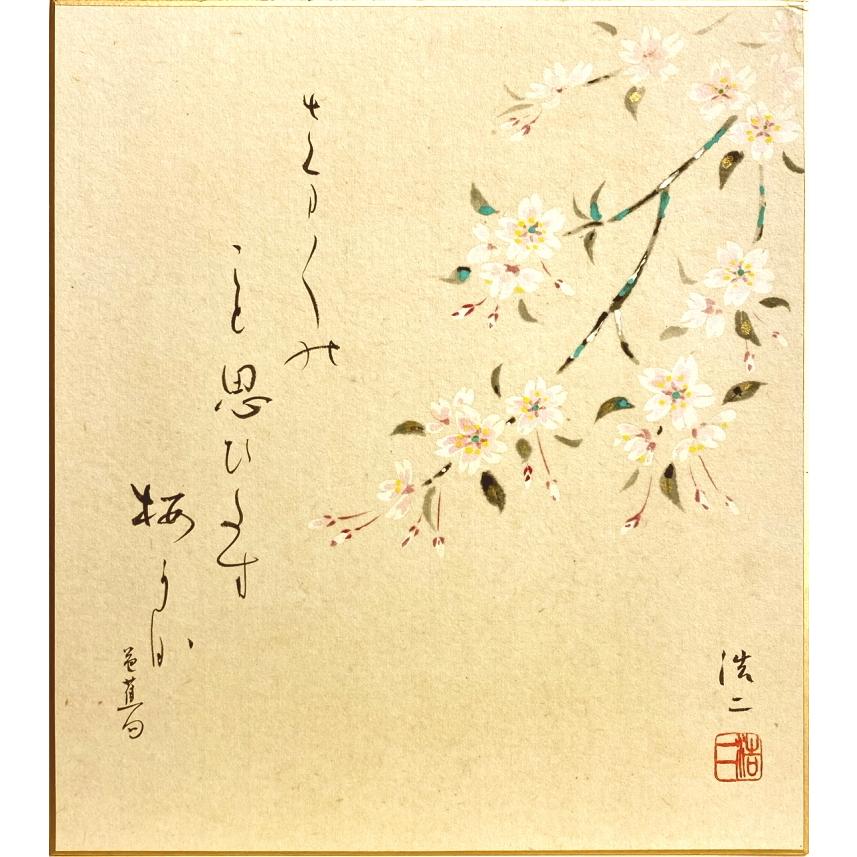 さまざまの
こと思ひ出す
桜かな
芭蕉句
浩二
浩二